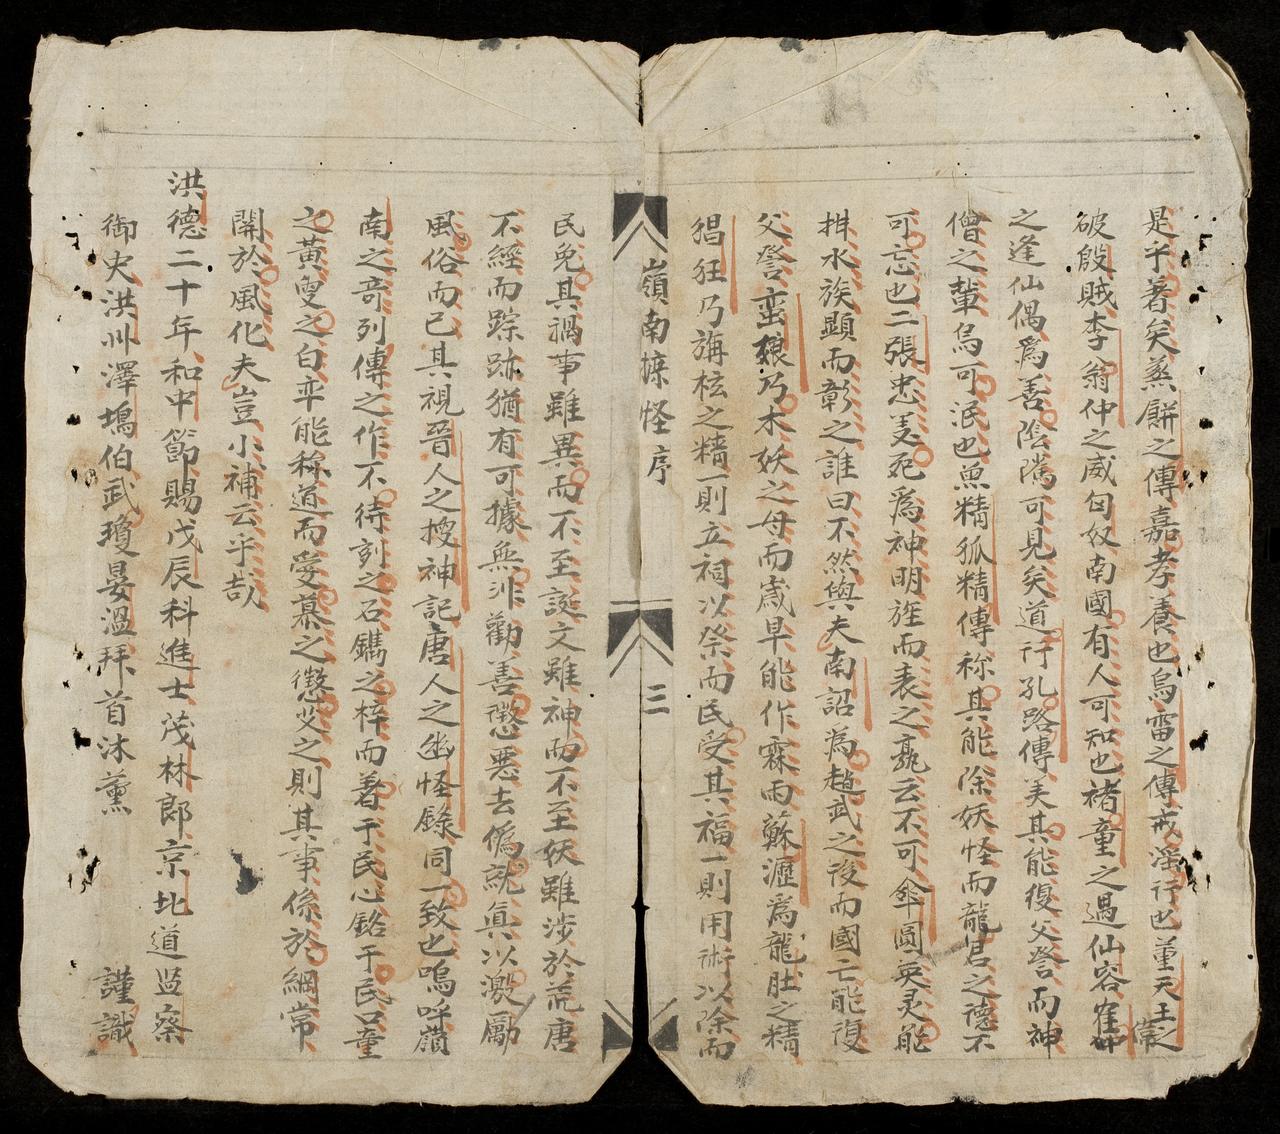 是乎著矣蒸餅之傳嘉孝養也烏雷之傳戒淫行也董天王之
破殷賊李翁仲之威匈奴南國有人可知也褚童之遇仙容崔偉
之逢仙偶爲善陰隲可見矣道行孔路傳美其能復父讐而神
僧之輩烏可泯也魚精狐精傳称其能除妖怪而龍君之德不
可忘也二張忠義死爲神明旌而表之孰云不可傘圓英灵能
排水族顯而彰之誰曰不然與夫南詔為趙武之後而國亡能復
父讐蛮娘乃木妖之母而歲旱能作霖雨蘇瀝爲龍肚之精
猖狂乃旃檀之精一則立祠以祭而民受其福一則用術以除而
嶺南摭怪序
三
民免其禍事雖異而不至誕文雖神而不至妖雖涉於荒唐
不經而踪跡猶有可據無非勸善懲悪去僞就眞以激勵
風俗而已其視晉人之搜神記唐人之幽怪錄同一致也嗚呼嶺
南之奇列傳之作不待刻之石鐫之梓而着于民心銘于民口童
之黄叟之白卒能称道而愛慕之懲艾之則其事係於綱常
関於風化夫豈小補云乎哉
洪德二十年和中節賜戊辰科進士茂林郎京北道监察
御史洪州澤塢伯武瓊晏溫拜首沐薰 謹識